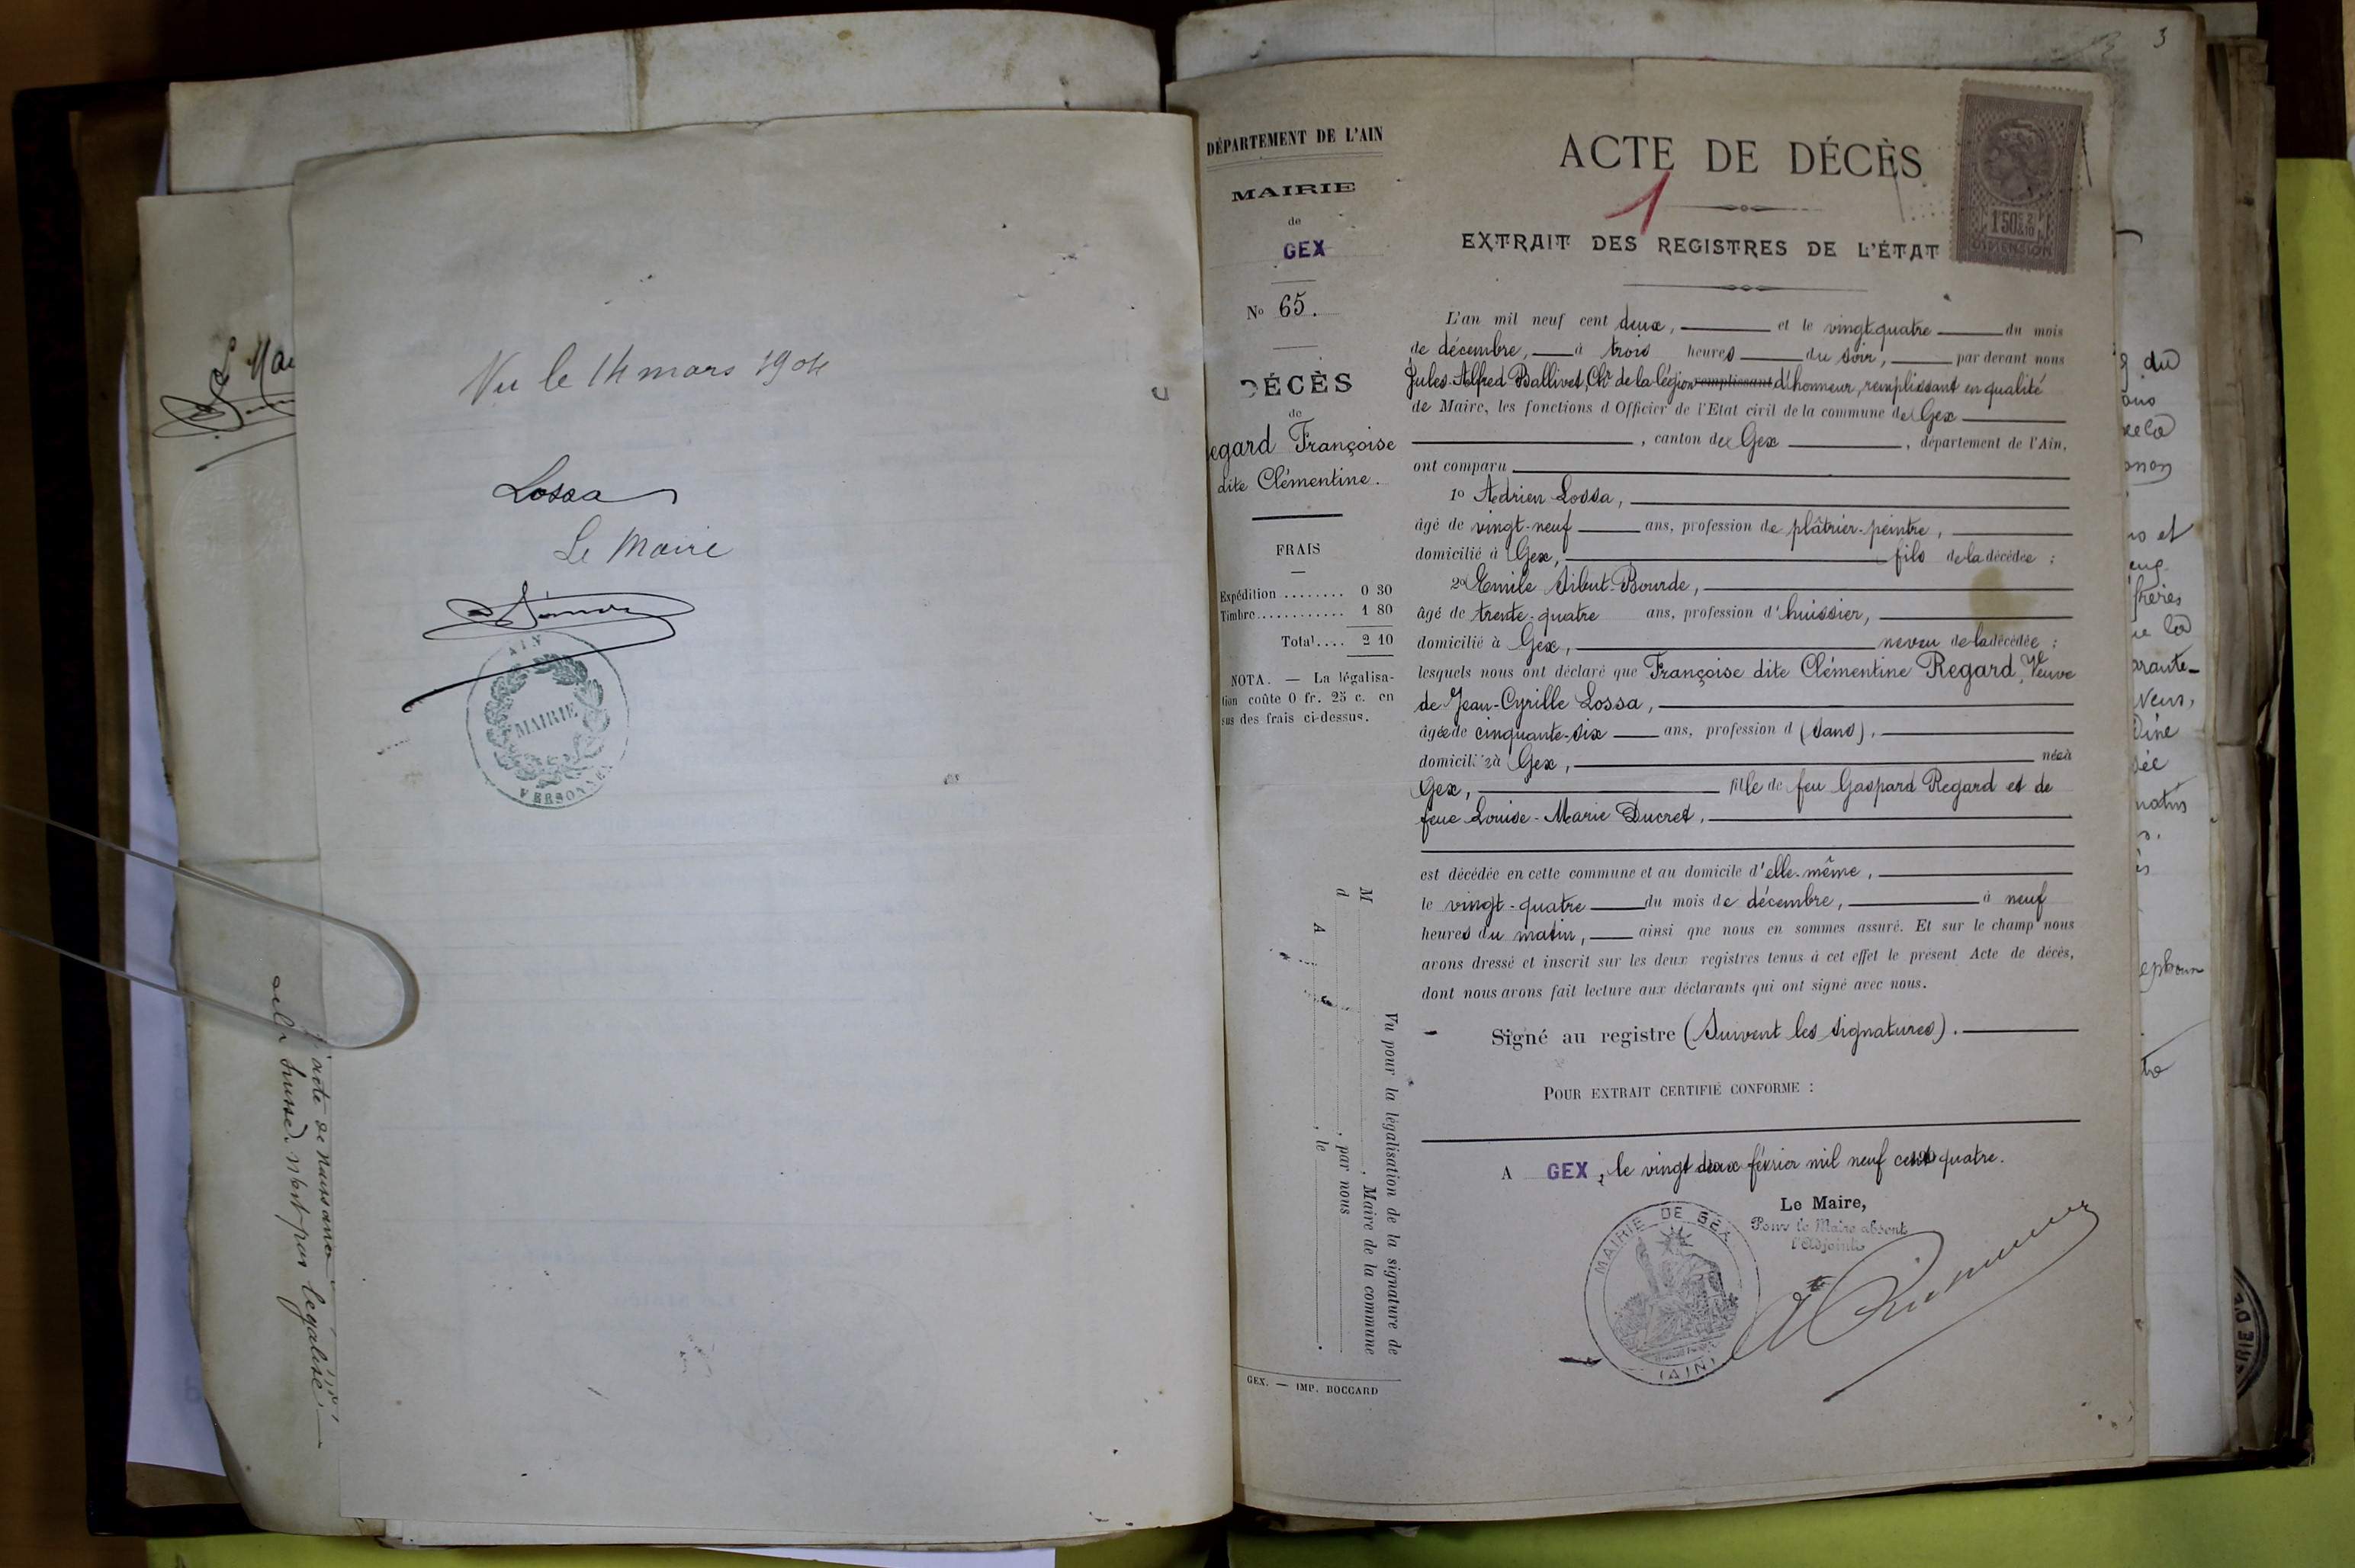 Vu le 14 mars 1904
Lossa
Le Maire
AIN
MAIRIE
VERSONNEX
acte de naissance
suisse n'est pas légalisé
3
DÉPARTEMENT DE L'AIN
MAIRIE
de
GEX
No 65.
DÉCÈS
de
egard Françoise
dite Clémentine.
FRAIS
Expédition ........ 0 30
Timbre............ 1 80
Total.... 2 10
NOTA. — La légalisa-
tion coûte 0 fr. 25 c. en
sus des frais ci-dessus.
Vu pour la légalisation de la signature de
M , Maire de la commune
d , par nous
A , le .
GEX. — IMP. BOCCARD
ACTE DE DÉCÈS
1
EXTRAIT DES REGISTRES DE L'ÉTAT
1f50c
2/10
DIMENSION
L'an mil neuf cent deux, et le vingt-quatre du mois
de décembre, à trois heures du soir, par devant nous
Jules-Alfred Ballivet, Chr de la légion remplissant d'honneur, remplissant en qualité
de Maire, les fonctions d'Officier de l'Etat civil de la commune de Gex
, canton de Gex , département de l'Ain,
ont comparu
1o Adrien Lossa,
âgé de vingt-neuf ans, profession de plâtrier-peintre,
domicilié à Gex, fils de la décédée ;
2o Emile Sibut-Bourde,
âgé de trente-quatre ans, profession d'huissier,
domicilié à Gex, neveu de la décédée ;
lesquels nous ont déclaré que Françoise dite Clémentine Regard, Veuve
de Jean-Cyrille Lossa,
âgée de cinquante-six ans, profession d (sans),
domiciliée à Gex, née à
Gex, fille de feu Gaspard Regard et de
feue Louise-Marie Ducret,
est décédée en cette commune et au domicile d'elle-même,
le vingt-quatre du mois de décembre, à neuf
heures du matin, ainsi que nous en sommes assuré. Et sur le champ nous
avons dressé et inscrit sur les deux registres tenus à cet effet le présent Acte de décès,
dont nous avons fait lecture aux déclarants qui ont signé avec nous.
Signé au registre (Suivent les signatures).
POUR EXTRAIT CERTIFIÉ CONFORME :
A GEX, le vingt deux février mil neuf cent quatre.
Le Maire,
Pour le Maire absent
l'Adjoint
MAIRIE DE GEX
(AIN)